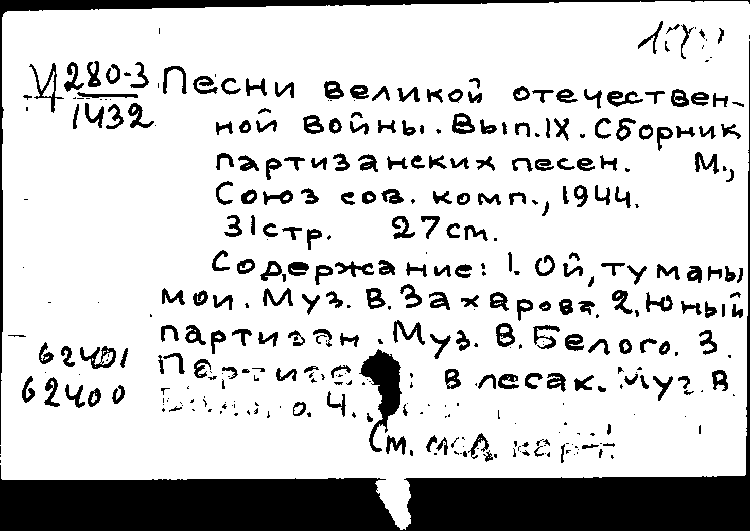 Ц 280-3 Песни великой отечествен-
1432 ной войны. Вып. IX. Сборник
партизанских песен. М.,
Союз сов. комп., 1944.
31 стр. 27 см.
Содержание: 1. Ой, туманы
мои. Муз. В. Захарова. 2. Юный
партизан. Муз. В. Белого. 3.
62401
62400
в лесах. Муз. В.
4.
См. след. карт.